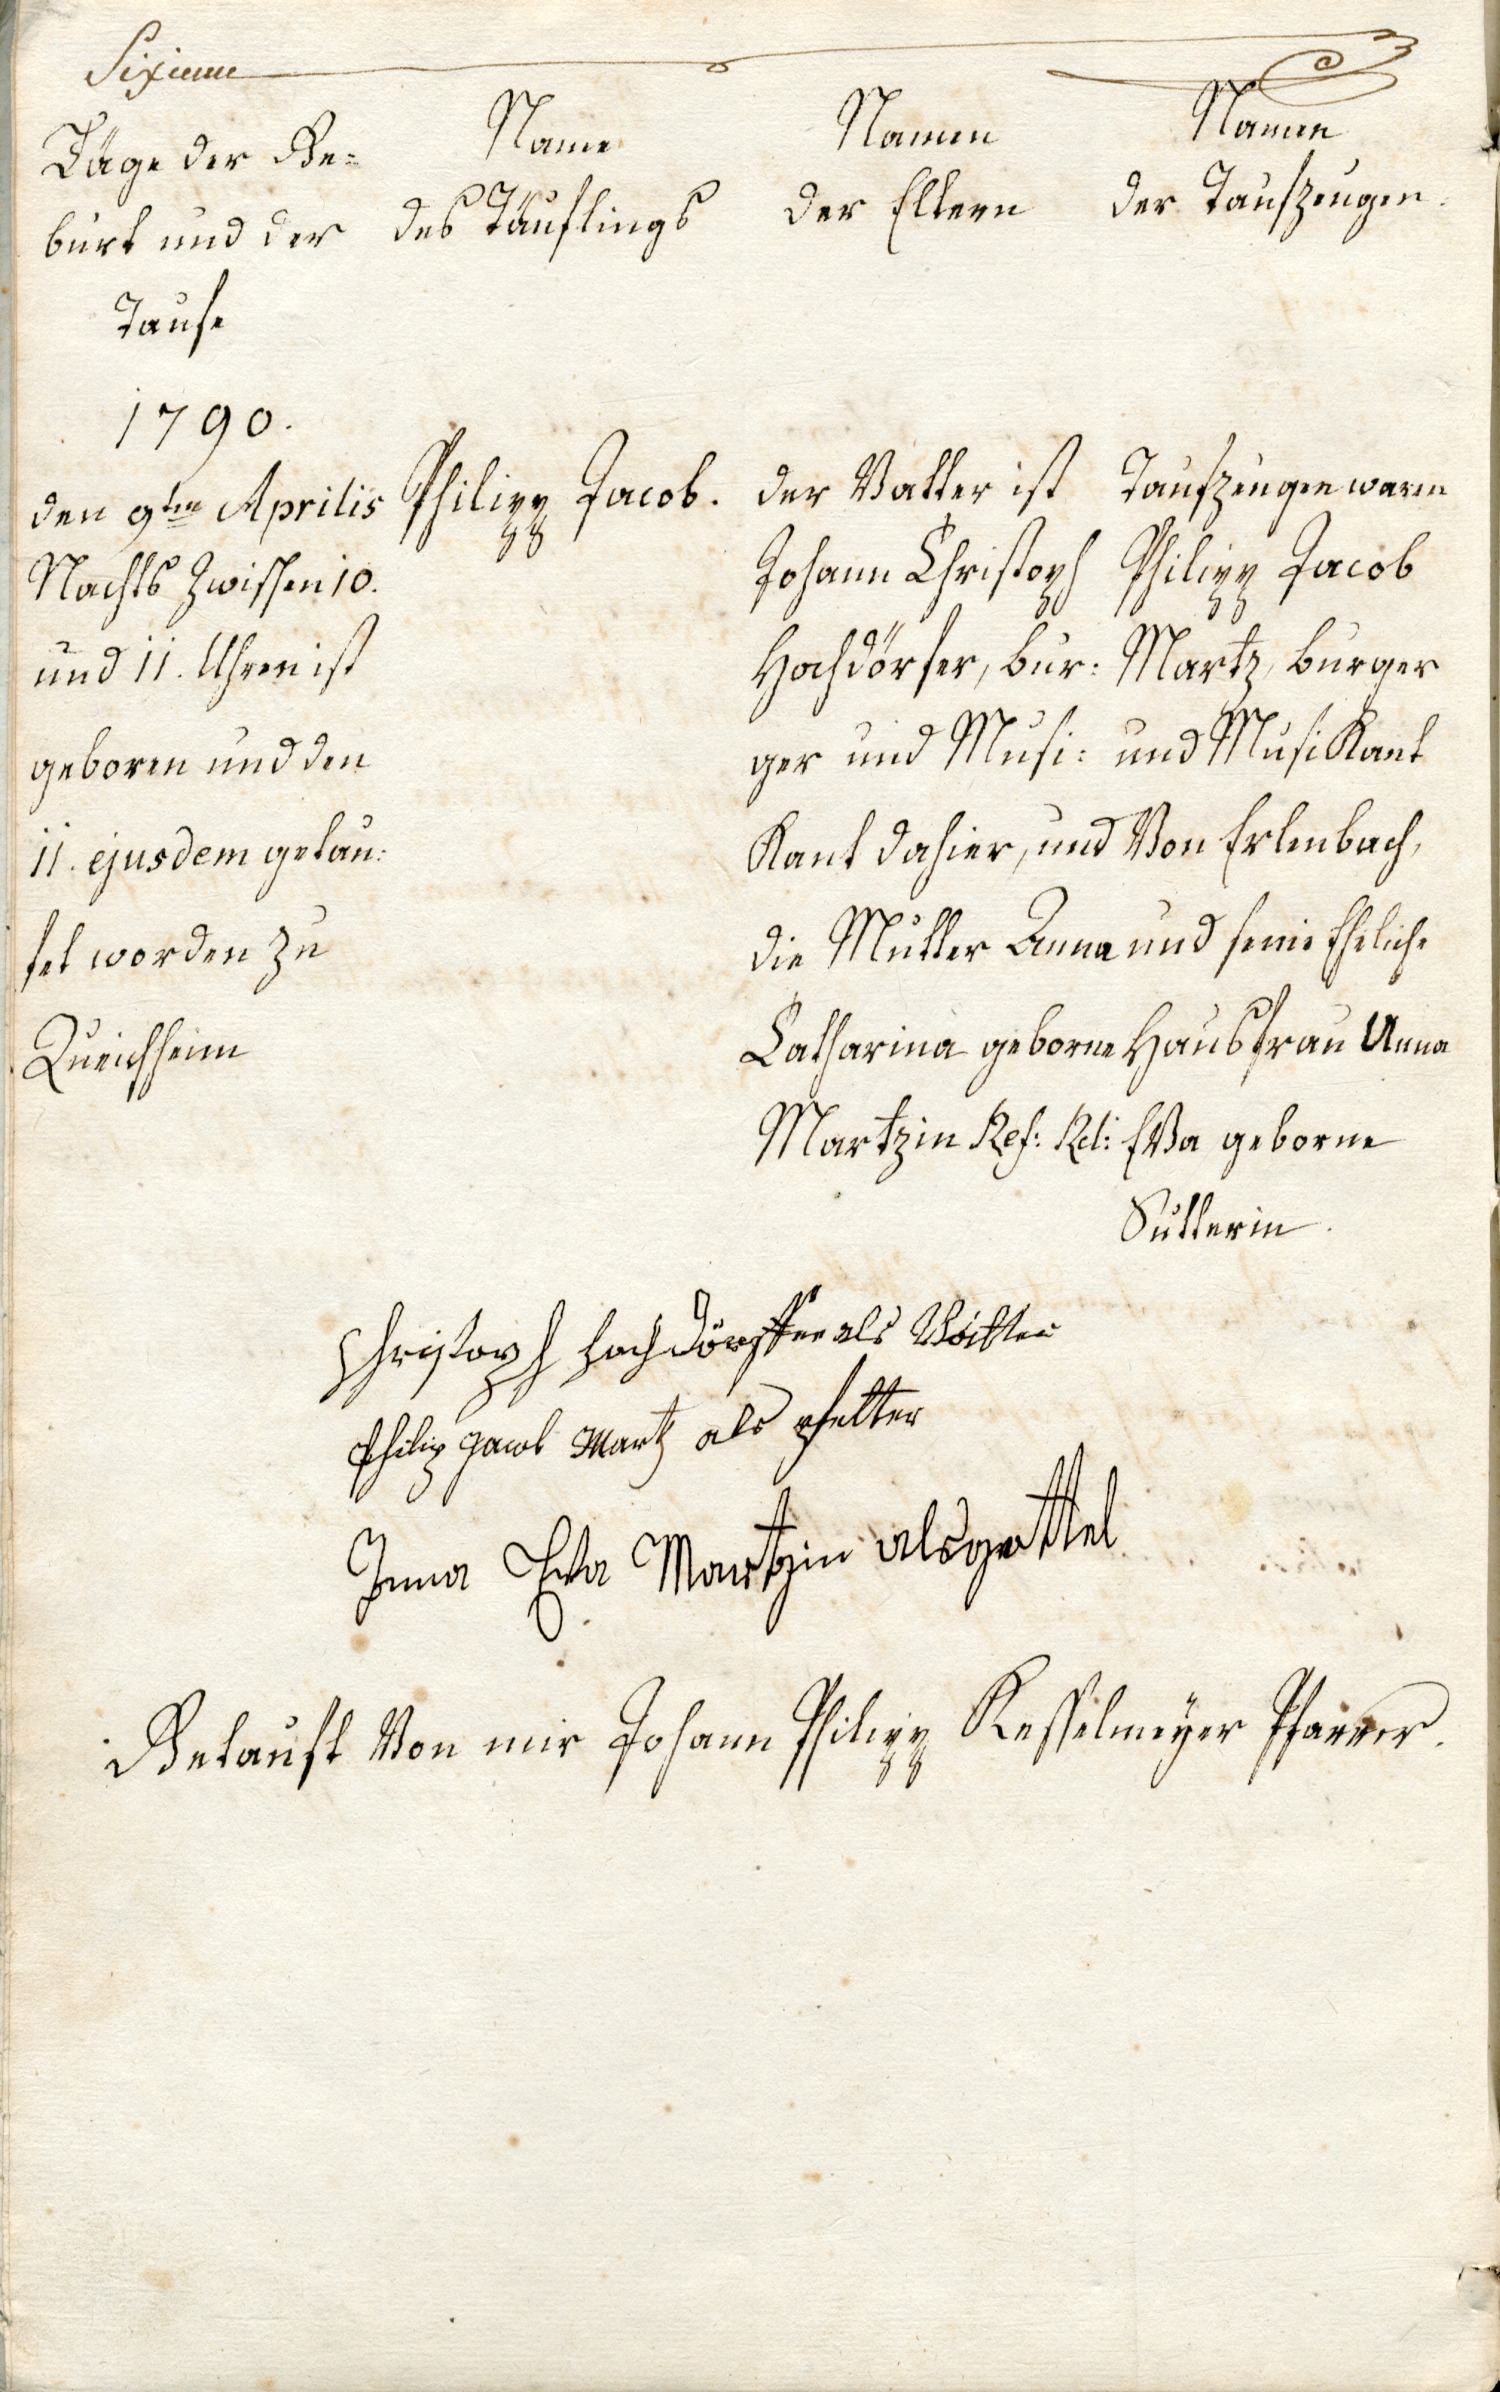 Sixieme
Täge der Ge=
burt und der
Taufe
Name
des Täuflings
Namen
der Eltern
Namen
der Taufzeugen.
1790.
den 9ten Aprilis
Nachts zwischen 10.
und 11. Uhren ist
geboren und den
11. ejusdem getau:
fet worden zu
Queichheim
Philipp Jacob.
der Vatter ist
Johann Christoph
Hochdörfer, bur:
ger und Musi:
kant dahier, und
die Mutter Anna
Catharina geborne
Martzin Ref: Rel:
Taufzeugen waren
Philipp Jacob
Martz, burger
und Musikant
von Erlenbach,
und seine Eheliche
Hausfrau Anna
Eva geborne
Sutterin.
Christoph Hochdörffer als Vatter
Philip Jacob Martz als pfetter
Anna Eva Martzin als gettel
Getauft von mir Johann Philipp Kesselmeyer Pfarrer.